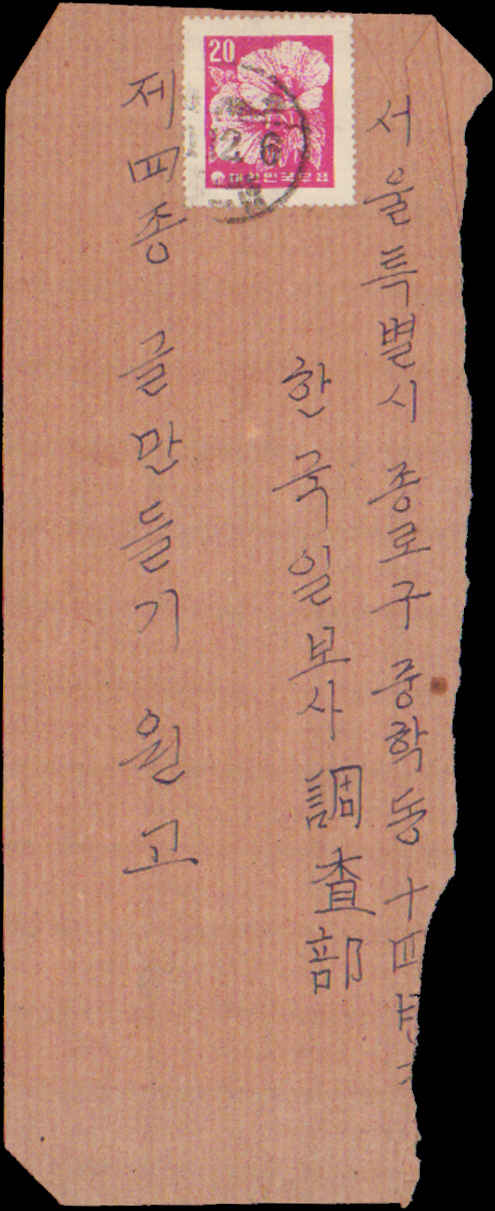 서울특별시 종로구 중학동 十四
한국일보사 調査部
20
대한민국우표
제四종 글만들기 원고